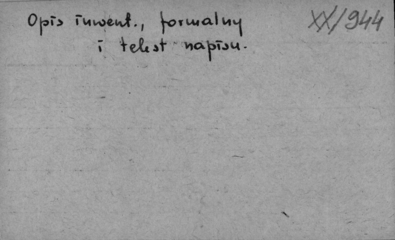 Opis inwent., formalny
i tekst napisu.
XX/944